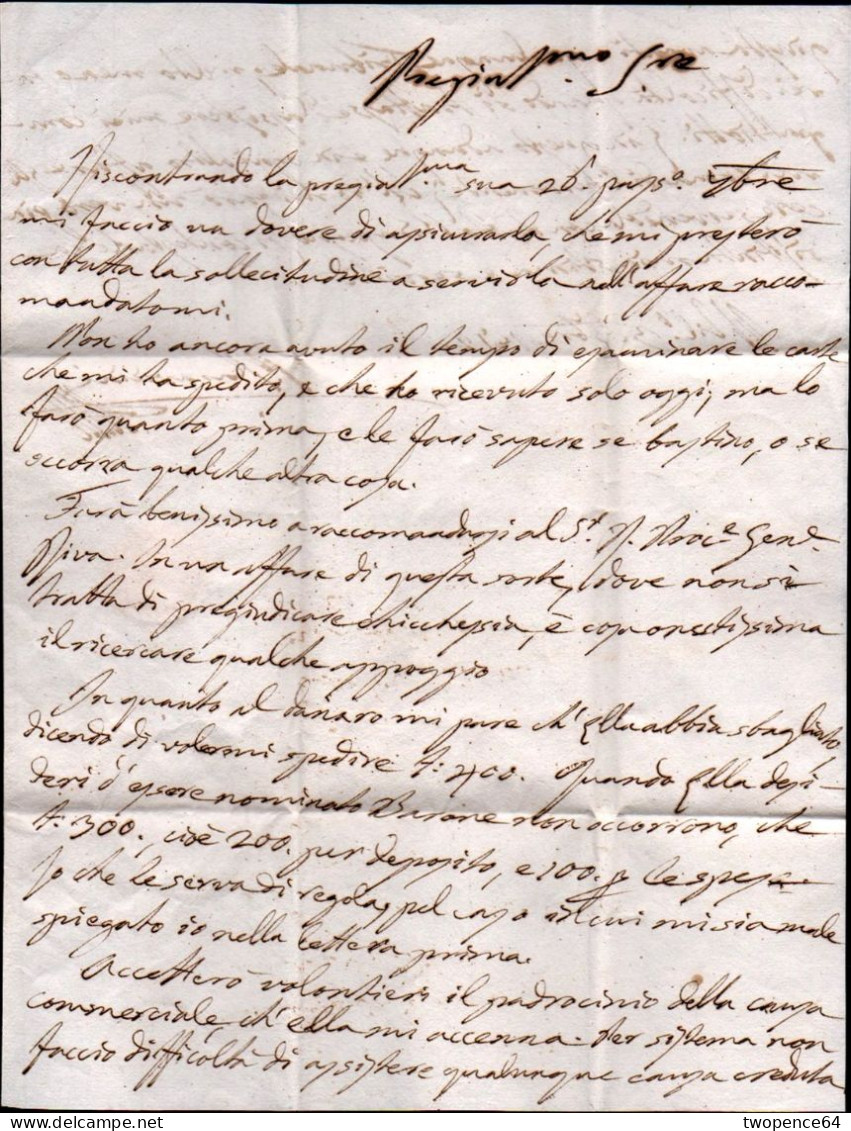 Pregiat.mo Sre
Riscontrando la pregiat.ma sua 26 pass.o 9bre
mi faccio un dovere di assicurarla, che mi presterò
con tutta la sollecitudine a servirla nell'affare racco-
mandatomi.
Non ho ancora avuto il tempo di esaminare le carte
che mi ha spedito, e che ho ricevuto solo oggi; ma lo
farò quanto prima, e le farò sapere se bastino, o se
occorra qualche altra cosa.
Farà benissimo a raccomandarsi al Sr. Gen.e
Riva. In un affare di questa sorte, dove non si
tratta di pregiudicare chicchessia, è cosa onestissima
il ricercare qualche appoggio
In quanto al danaro mi pare ch'Ella abbia sbagliato,
dicendo di volermi spedire f: 400. Quando Ella desi-
deri d'essere nominato Barone non occorrono, che
f: 300., cioè 200. per deposito, e 100. p le spese.
Io che le serva di regola, pel caso in cui mi sia male
spiegato io nella lettera prima.
Accetterò volontieri il padrocinio della causa
commerciale, ch'ella mi accenna. Per sistema non
faccio difficoltà di assistere qualunque causa creduta
www.delcampe.net
twopence64